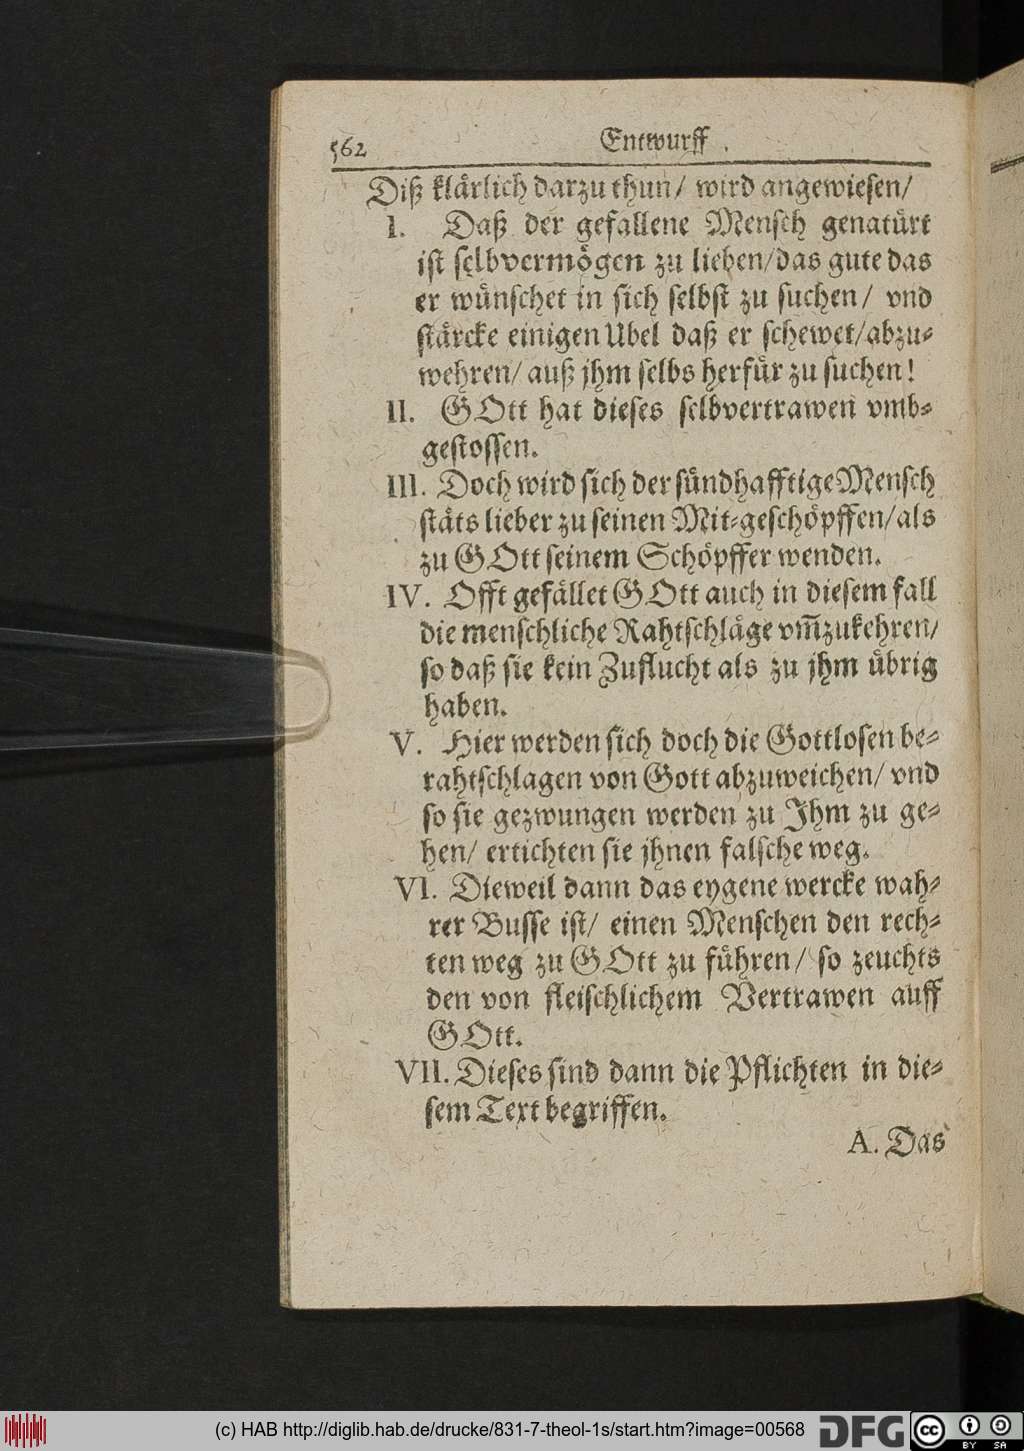 562
Entwurff
Diß klärlich darzu thun/ wird angewiesen/
I. Daß der gefallene Mensch genatürt
ist selbvermögen zu lieben/das gute das
er wünschet in sich selbst zu suchen/ vnd
stärcke einigen Ubel daß er schewet/abzu-
wehren/ auß jhm selbs herfür zu suchen!
II. GOtt hat dieses selbvertrawen vmb-
gestossen.
III. Doch wird sich der sündhafftige Mensch
stäts lieber zu seinen Mit-geschöpffen/als
zu GOtt seinem Schöpffer wenden.
IV. Offt gefället GOtt auch in diesem fall
die menschliche Rahtschläge vm̄zukehren/
so daß sie kein Zuflucht als zu jhm übrig
haben.
V. Hier werden sich doch die Gottlosen be-
rahtschlagen von Gott abzuweichen/ vnd
so sie gezwungen werden zu Ihm zu ge-
hen/ ertichten sie jhnen falsche weg.
VI. Dieweil dann das eygene wercke wah-
rer Busse ist/ einen Menschen den rech-
ten weg zu GOtt zu führen/ so zeuchts
den von fleischlichem Vertrawen auff
GOtt.
VII. Dieses sind dann die Pflichten in die-
sem Text begriffen.
A. Das
(c) HAB http://diglib.hab.de/drucke/831-7-theol-1s/start.htm?image=00568
DFG
cc BY SA